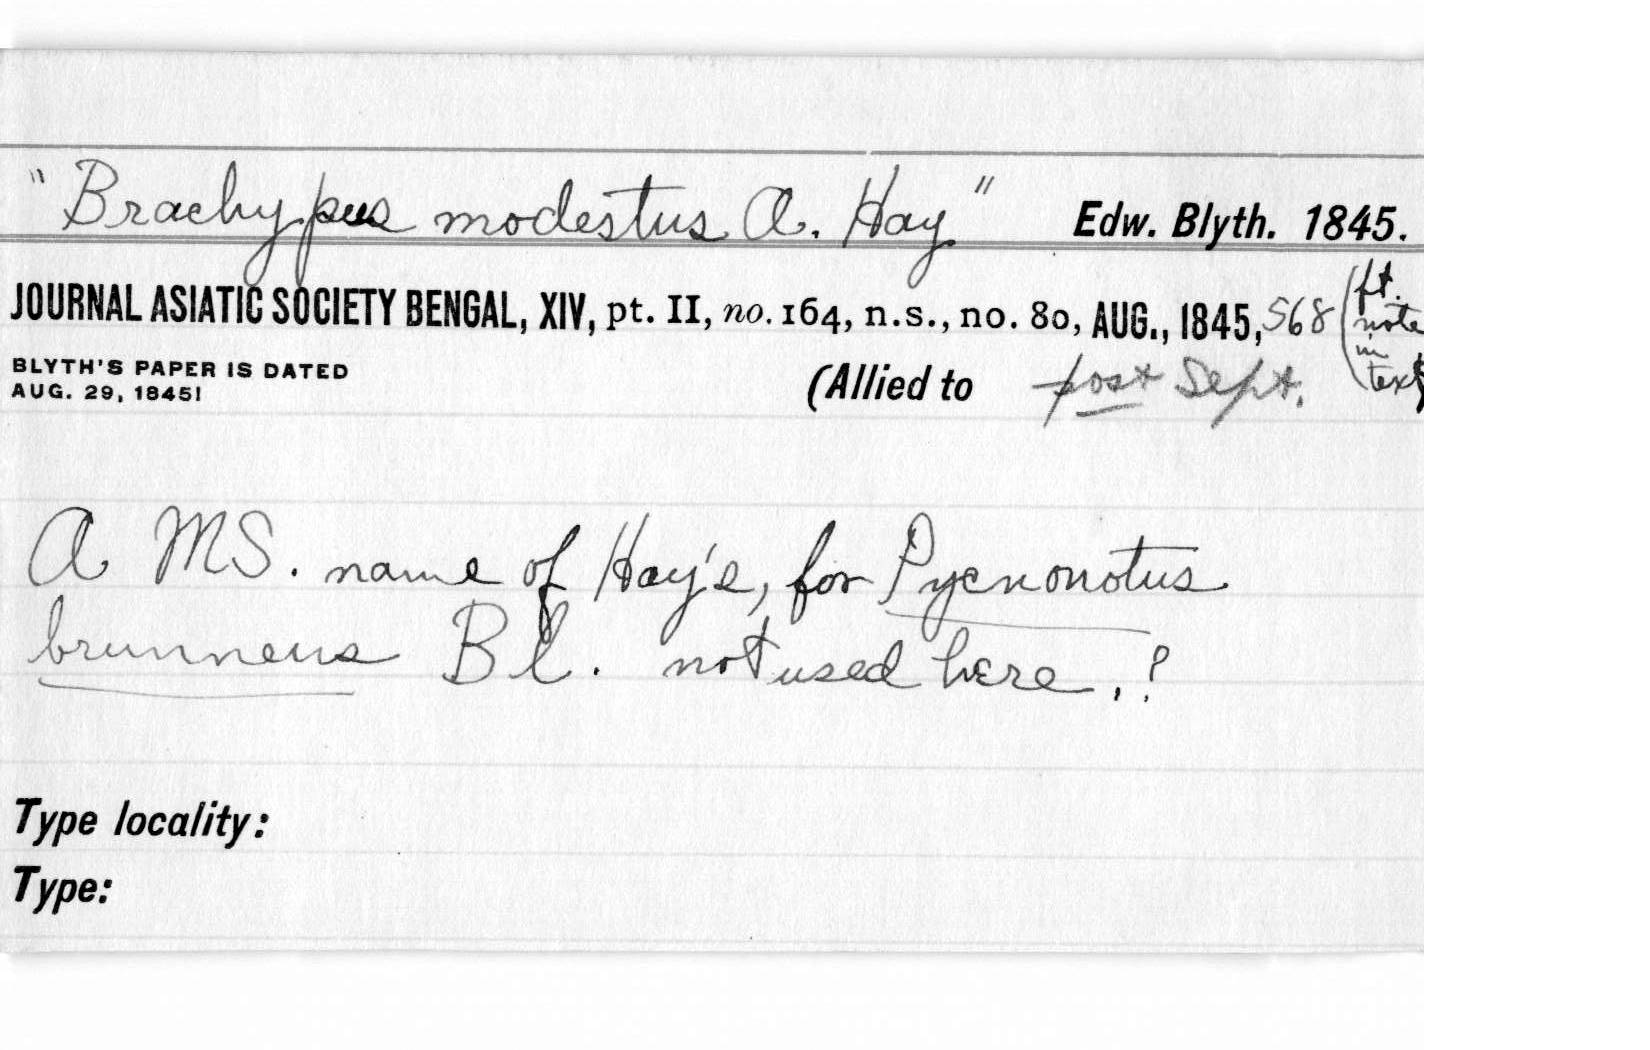 "Brachypus modestus A. Hay" Edw. Blyth. 1845.
JOURNAL ASIATIC SOCIETY BENGAL, XIV, pt. II, no. 164, n.s., no. 80, AUG., 1845, 568 (ft. note in text)
BLYTH'S PAPER IS DATED
AUG. 29, 1845!
(Allied to post Sept.
A MS. name of Hay's, for Pycnonotus
brunneus Bl. not used here, ?
Type locality:
Type: